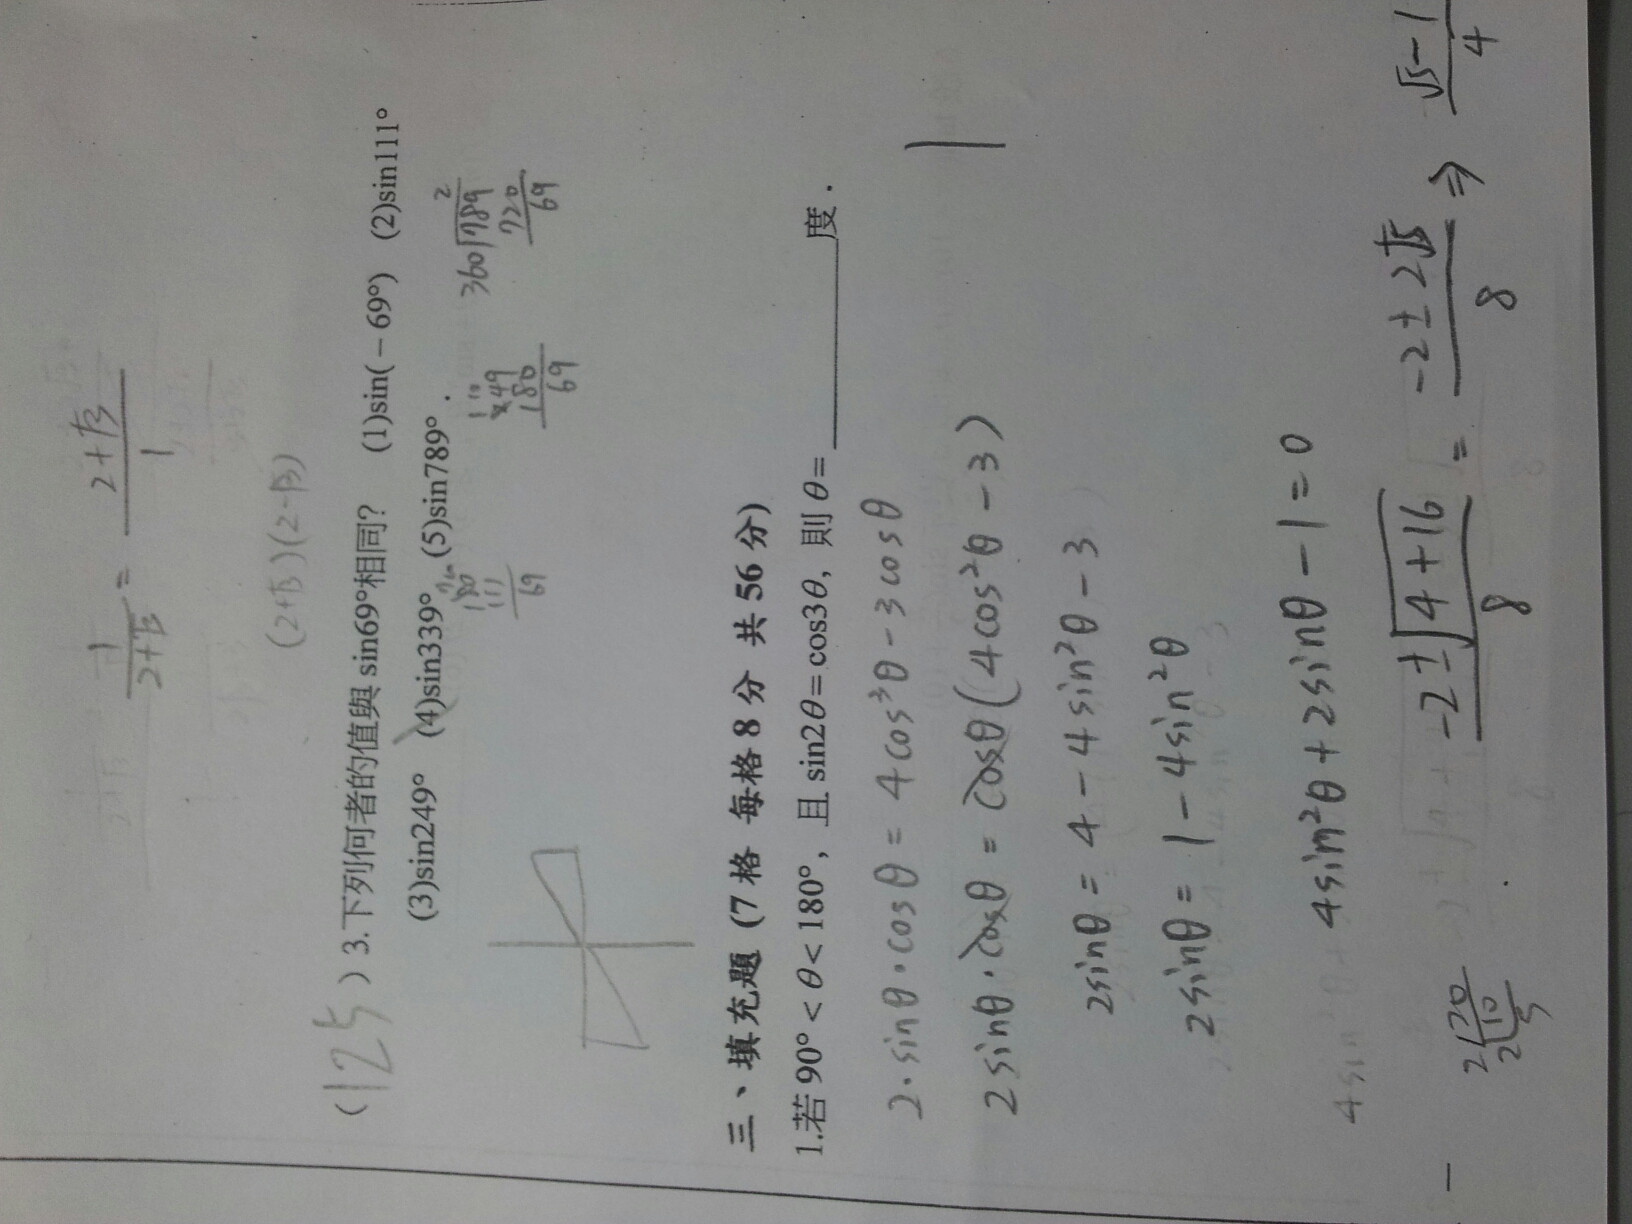 1/(2+√3) = (2+√3)/1
(2+√3)(2-√3)
(125) 3.下列何者的值與 sin69°相同? (1)sin(-69°) (2)sin111°
(3)sin249° (4)sin339° (5)sin789°.
180
111
69
249
180
69
2
360 789
720
69
三、填充題 (7 格 每格 8 分 共 56 分)
1.若 90°<θ<180°, 且 sin2θ=cos3θ, 則 θ=________度.
2·sinθ·cosθ = 4cos³θ-3cosθ
2sinθ·cosθ = cosθ(4cos²θ-3)
2sinθ = 4-4sin²θ-3
2sinθ = 1-4sin²θ
4sin²θ+2sinθ-1=0
(-2±√(4+16))/8 = (-2±2√5)/8 ⇒ (√5-1)/4
2 20
2 10
5